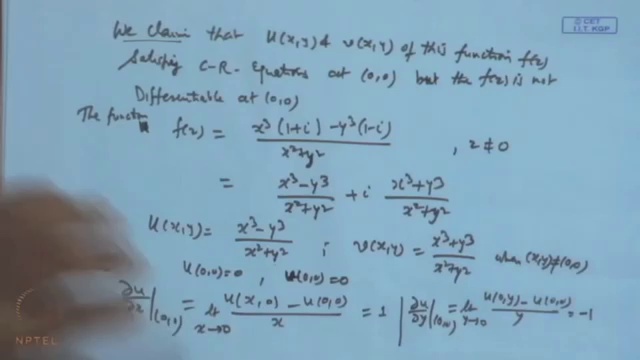 © CET
I.I.T. KGP
We claim that u(x,y) & v(x,y) of this function f(z)
Satisfying C-R- Equations at (0,0) but the f(z) is not
Differentiable at (0,0)
The function f(z) = x³(1+i) - y³(1-i) / x²+y² , z ≠ 0
= x³-y³ / x²+y² + i x³+y³ / x²+y²
u(x,y) = x³-y³ / x²+y² ; v(x,y) = x³+y³ / x²+y² when (x,y)≠(0,0)
u(0,0)=0 , v(0,0)=0
∂u/∂x |(0,0) = lt x→0 u(x,0) - u(0,0) / x = 1 | ∂u/∂y |(0,0) = lt y→0 u(0,y) - u(0,0) / y = -1
NPTEL